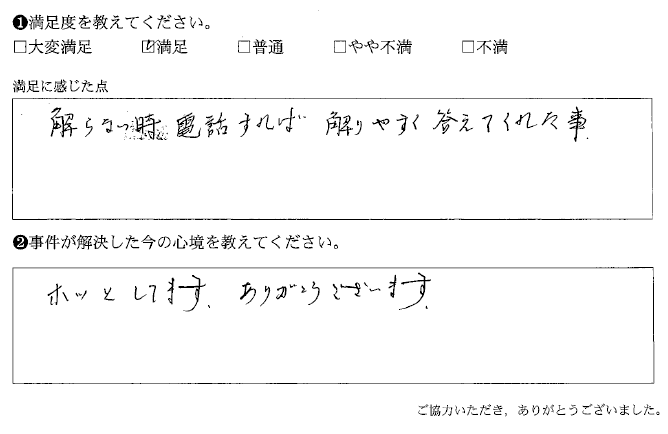 ❶満足度を教えてください。
□大変満足 ☑満足 □普通 □やや不満 □不満
満足に感じた点
解らない時 電話すれば 解りやすく 答えてくれた事.
❷事件が解決した今の心境を教えてください。
ホッと してます. ありがとうございます.
ご協力いただき，ありがとうございました。